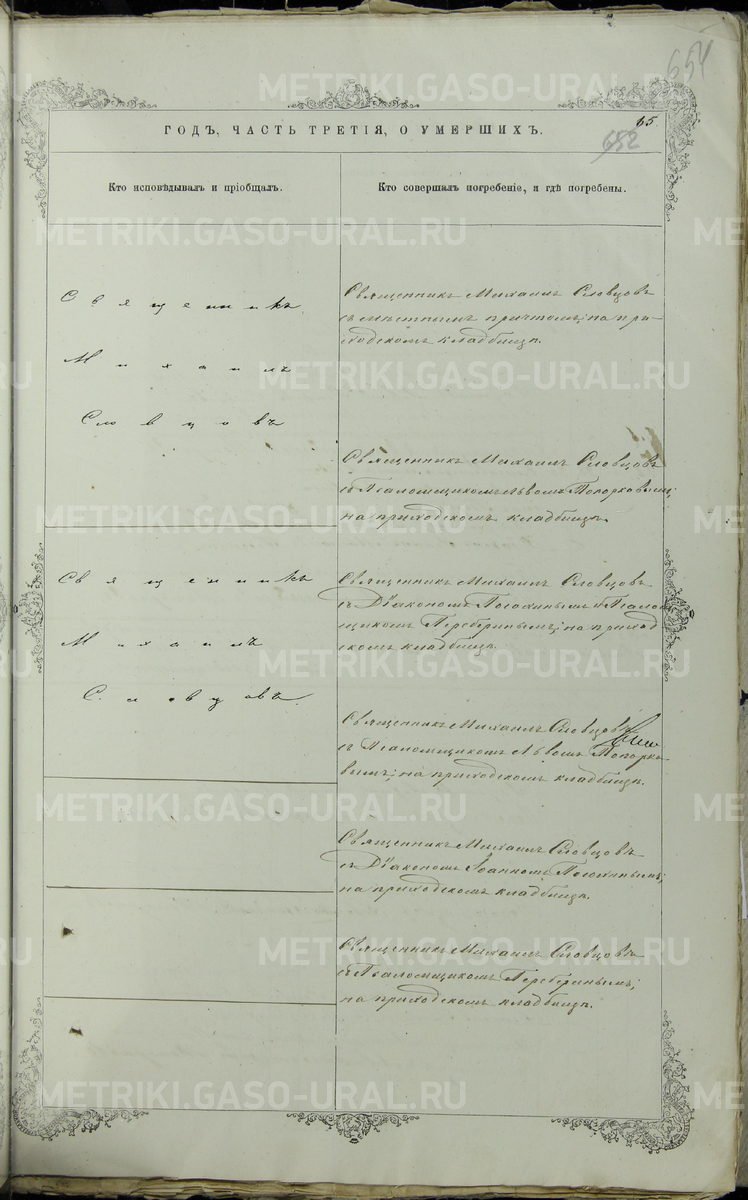 654
65
652
ГОДЪ, ЧАСТЬ ТРЕТІЯ, О УМЕРШИХЪ.
Кто исповѣдывалъ и пріобщалъ.
Кто совершалъ погребеніе, и гдѣ погребены.
Священникъ
Михаилъ
Словцовъ
Священникъ Михаилъ Словцовъ
съ мѣстнымъ причтомъ; на при-
ходскомъ кладбищѣ.
Священникъ Михаилъ Словцовъ
съ Псаломщикомъ Львомъ Топорковымъ;
на приходскомъ кладбищѣ.
Священникъ
Михаилъ
Словцовъ
Священникъ Михаилъ Словцовъ
съ Діакономъ и Псалом
щикомъ на приход
скомъ кладбищѣ.
Священникъ Михаилъ Словцовъ
съ Псаломщикомъ Львомъ Топорко
вымъ; на приходскомъ кладбищѣ.
Священникъ Михаилъ Словцовъ
съ Діакономъ Іоанномъ
на приходскомъ кладбищѣ.
Священникъ Михаилъ Словцовъ
съ Псаломщикомъ
на приходскомъ кладбищѣ.
METRIKI.GASO-URAL.RU